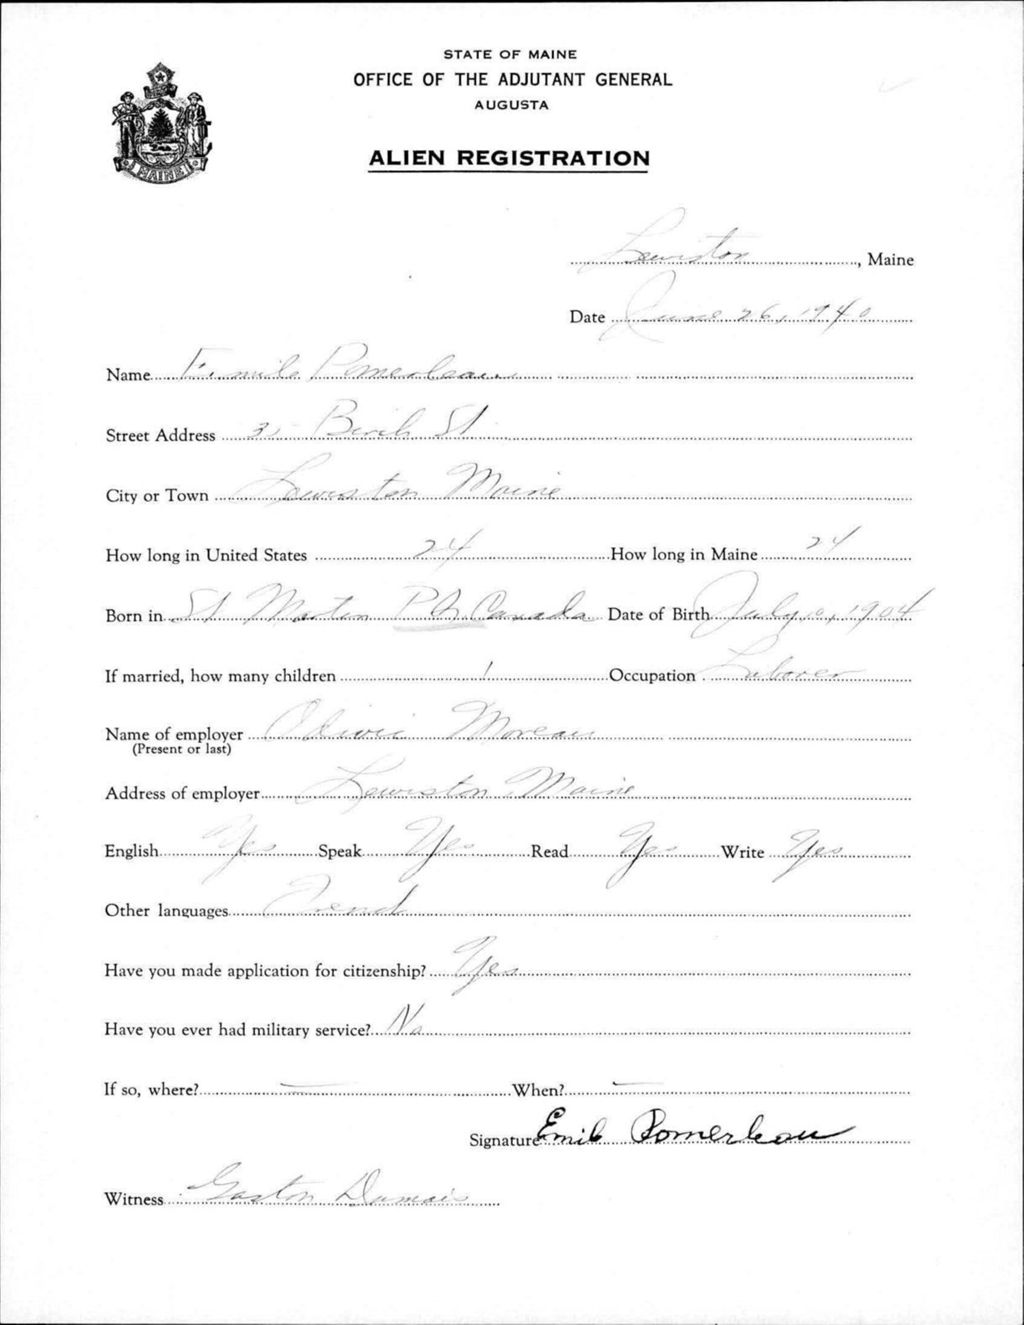 STATE OF MAINE
OFFICE OF THE ADJUTANT GENERAL
AUGUSTA
MAINE
ALIEN REGISTRATION
Lewiston, Maine
Date June 26, 1940
Name Emile Pomerleau
Street Address Birch St
City or Town Lewiston Maine
How long in United States 24 How long in Maine 24
Born in St Martin P Q Canada Date of Birth July 1904
If married, how many children 1 Occupation Laborer
Name of employer Moreau
(Present or last)
Address of employer Lewiston, Maine
English Yes Speak Yes Read Yes Write Yes
Other languages French
Have you made application for citizenship? Yes
Have you ever had military service? No
If so, where? — When? —
Signature Emile Pomerleau
Witness Gaston Dumais